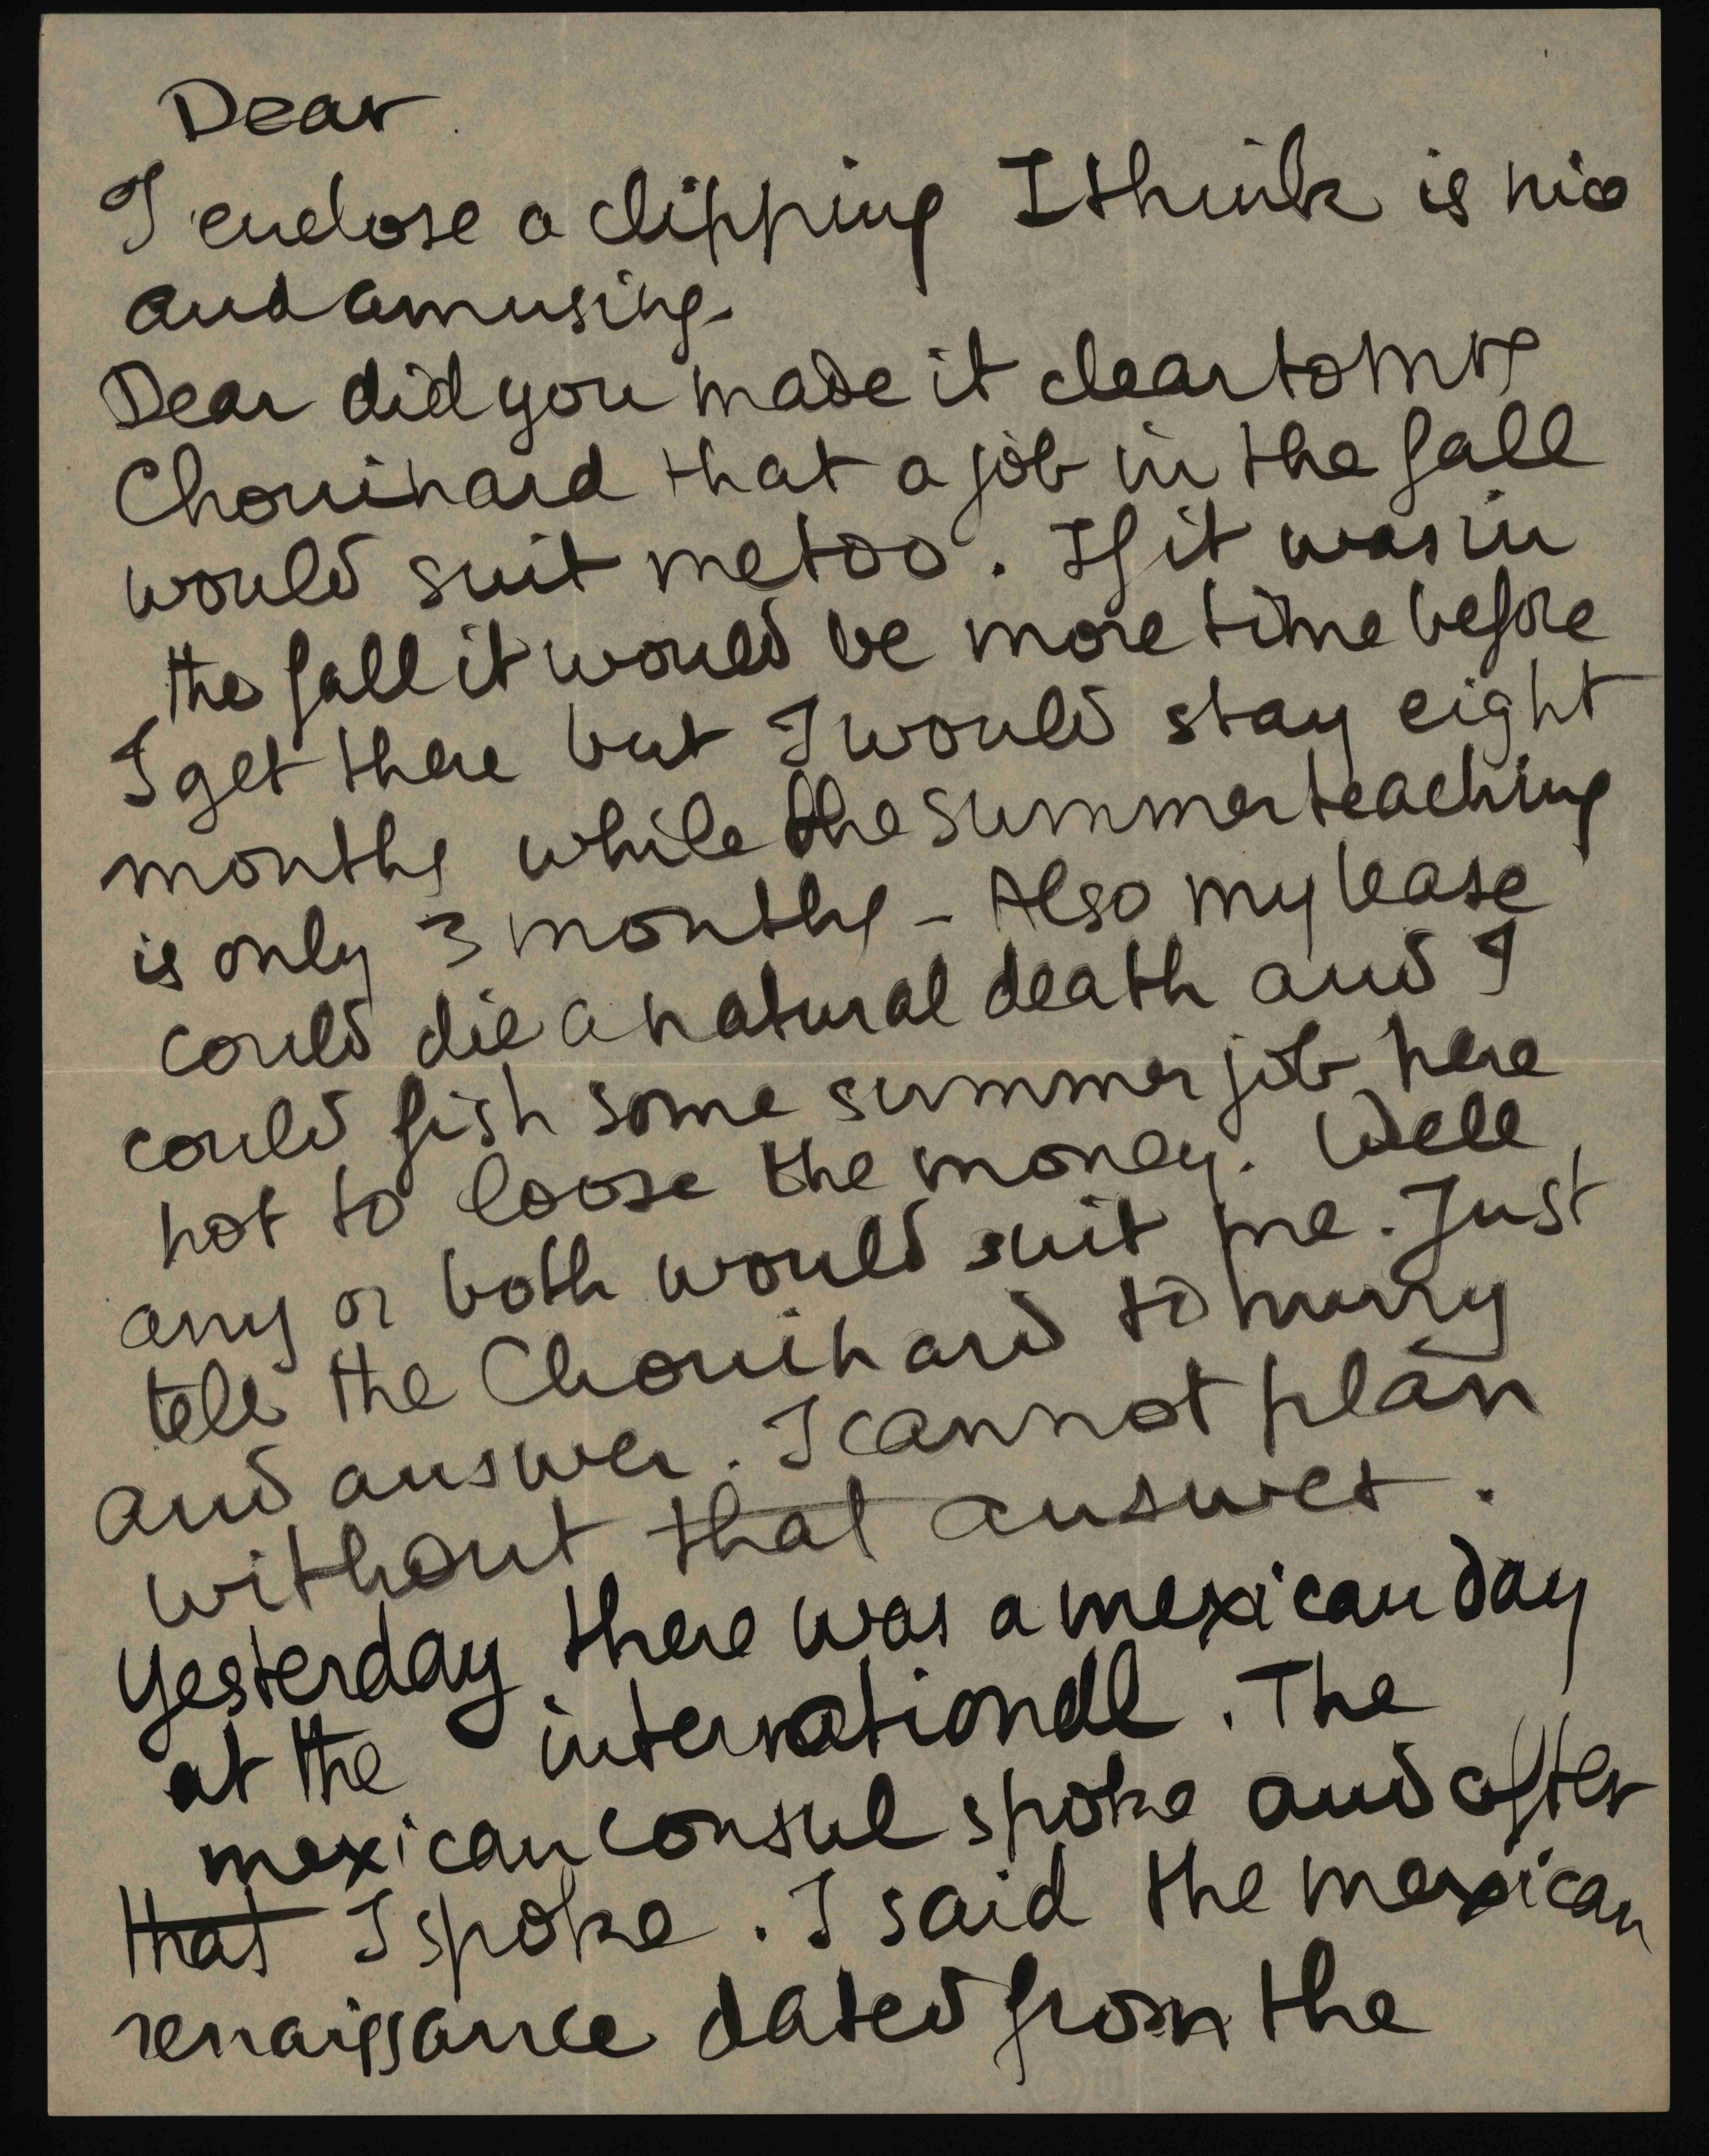 Dear
I enclose a clipping I think is nice
and amusing.
Dear did you made it clear to Mrs
Chouinard that a job in the fall
would suit me too. If it was in
the fall it would be more time before
I get there but I would stay eight
months while the summer teaching
is only 3 months - Also my lease
could die a natural death and I
could fish some summer job here
not to loose the money. Well
any or both would suit me. Just
tell the Chouinard to hurry
and answer. I cannot plan
without that answer.
Yesterday there was a mexican day
at the international. The
mexican consul spoke and after
that I spoke. I said the mexican
renaissance dated from the